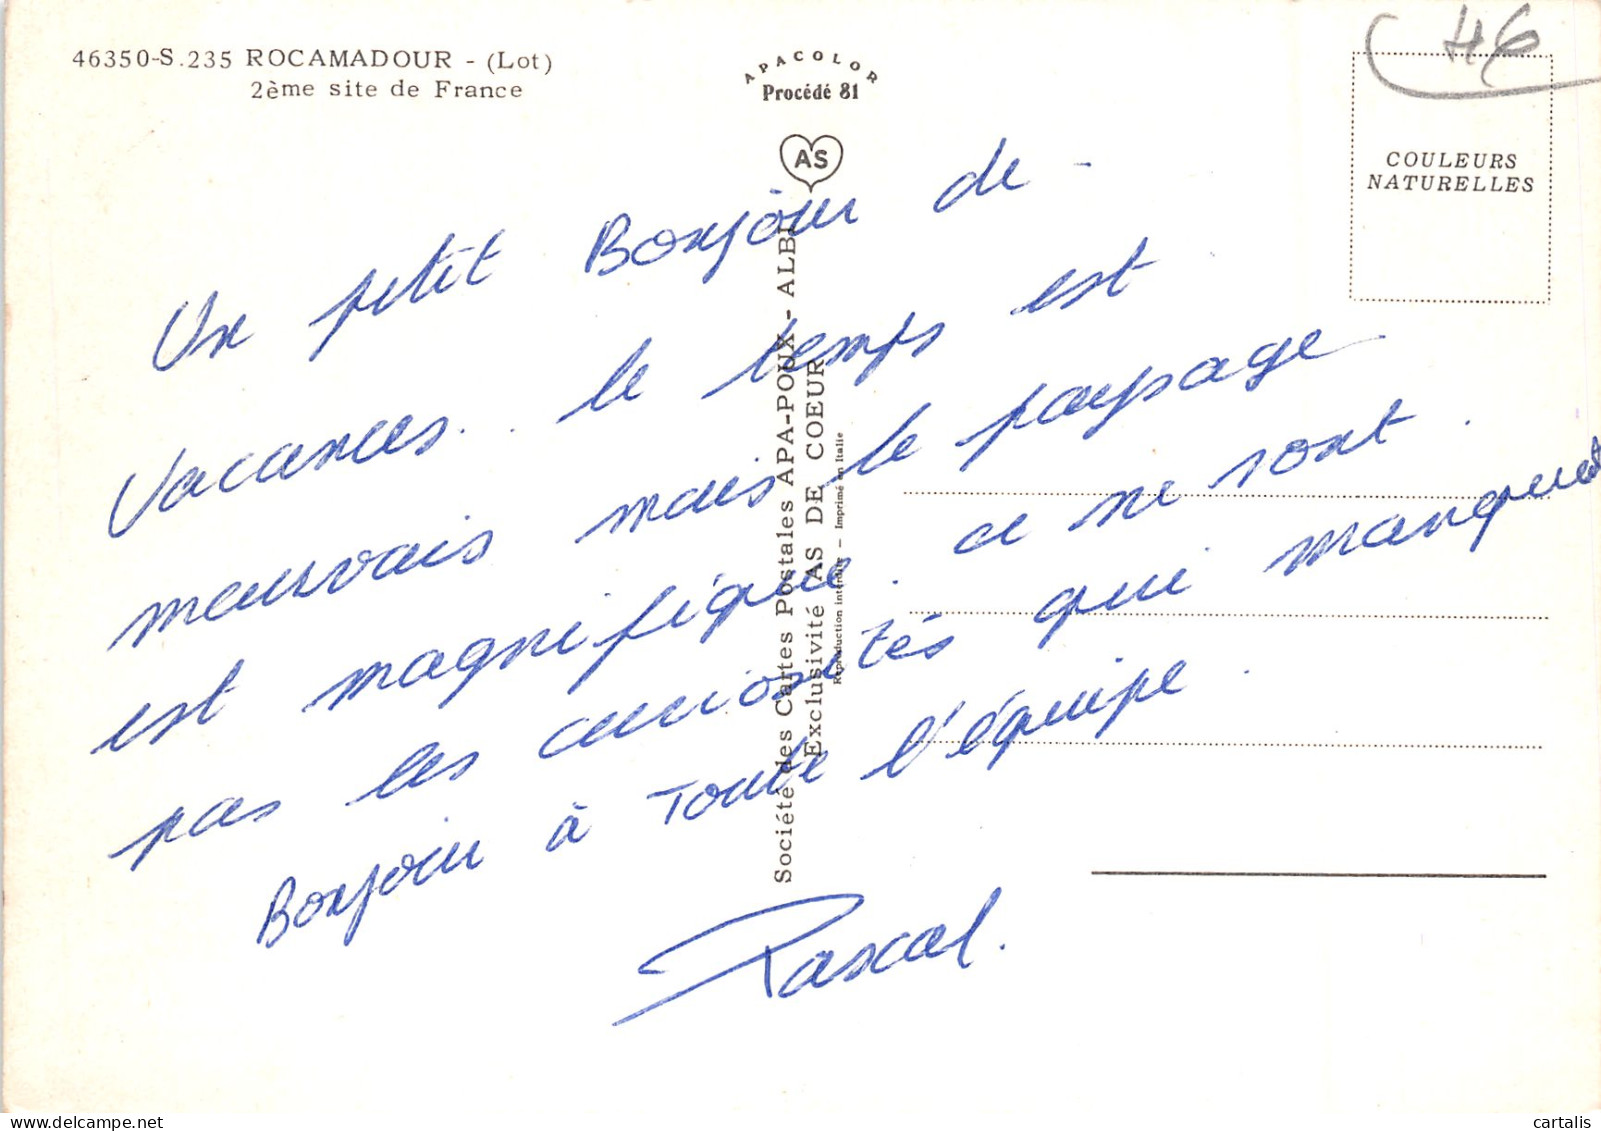 46350-S.235 ROCAMADOUR - (Lot)
2ème site de France
APACOLOR
Procédé 81
AS
46
COULEURS
NATURELLES
Un petit Bonjour de -
vacances.. le temps est
mauvais mais le paysage
est magnifique. ce ne sont
pas les curiosités qui manquent.
Bonjour à Toute l'équipe.
Pascal.
Société des Cartes Postales APA-POUX - ALBI
Exclusivité AS DE COEUR
Reproduction interdite - Imprimé en Italie
cartalis
delcampe.net